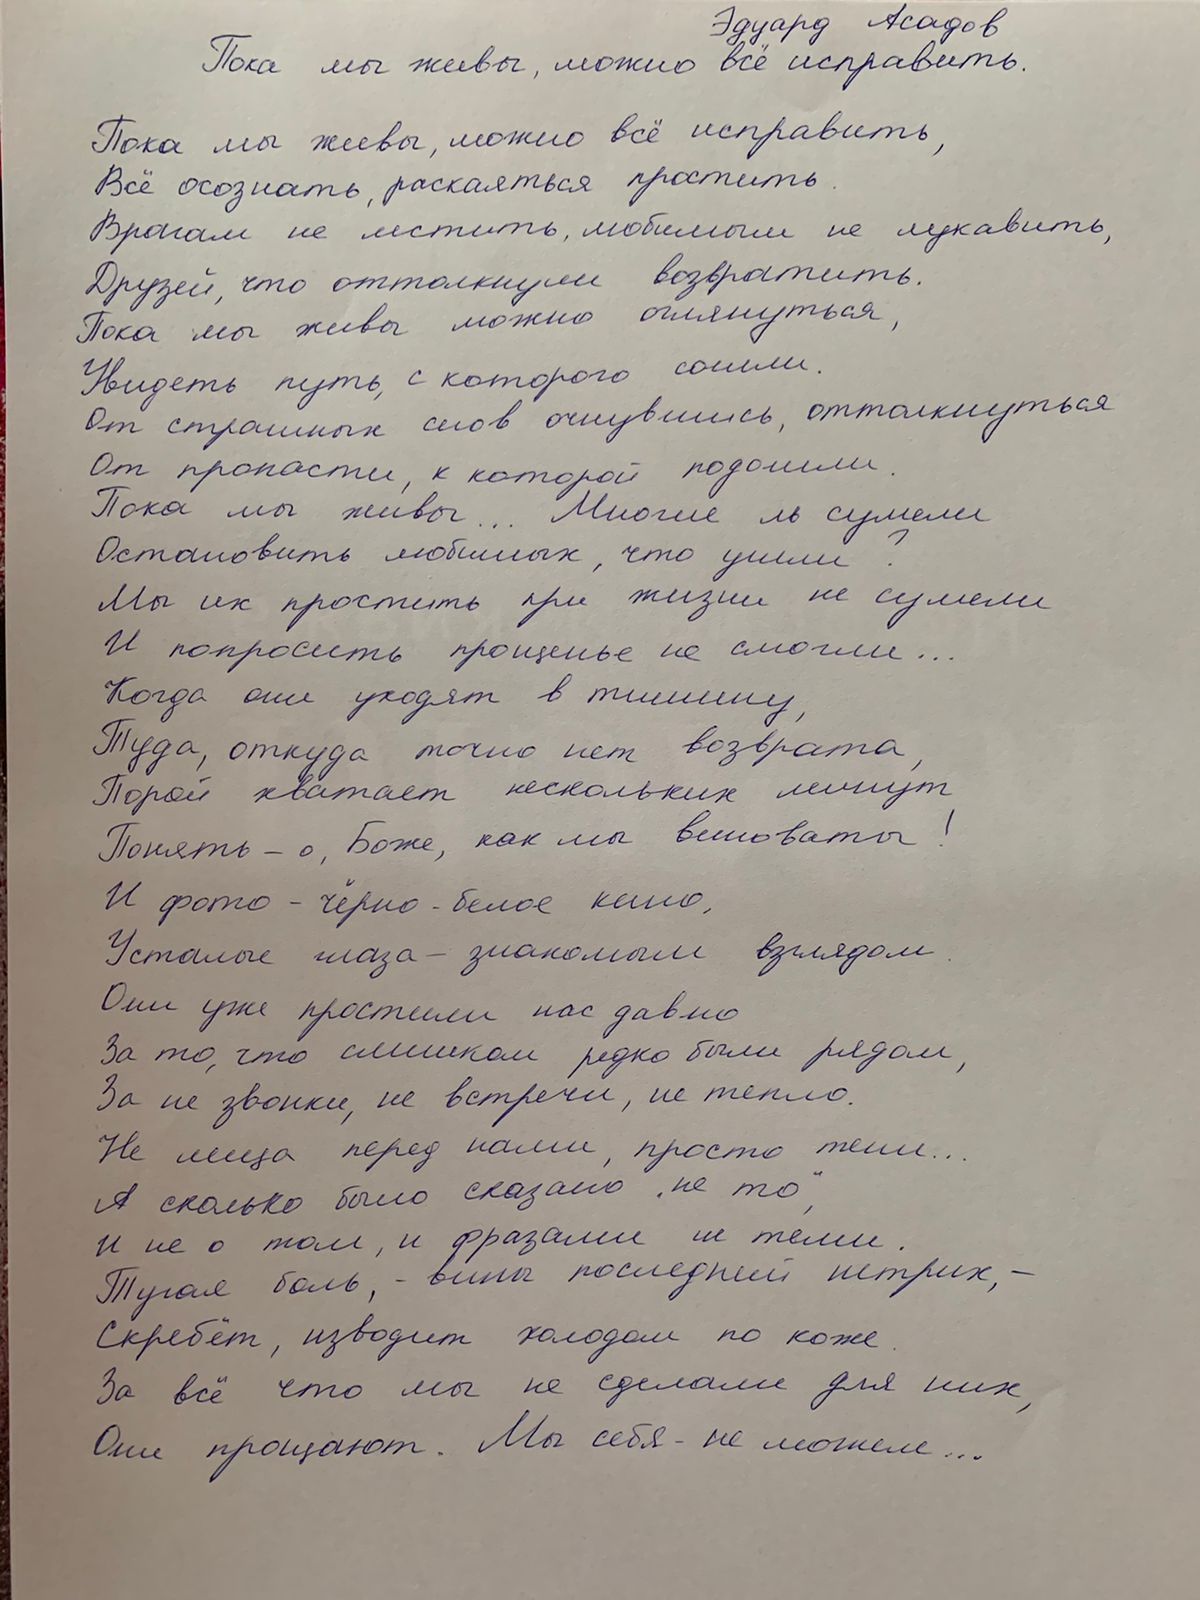 Эдуард Асадов
Пока мы живы, можно всё исправить.
Пока мы живы, можно всё исправить,
Всё осознать, раскаяться простить.
Врагам не мстить, любимым не лукавить,
Друзей, что оттолкнули возвратить.
Пока мы живы можно оглянуться,
Увидеть путь, с которого сошли.
От страшных снов очнувшись, оттолкнуться
От пропасти, к которой подошли.
Пока мы живы... Многие ль сумели
Остановить любимых, что ушли?
Мы их простить при жизни не сумели
И попросить прощенье не смогли...
Когда они уходят в тишину,
Туда, откуда точно нет возврата,
Порой хватает нескольких минут
Понять - о, Боже, как мы виноваты!
И фото - чёрно-белое кино,
Усталые глаза - знакомым взглядом.
Они уже простили нас давно
За то, что слишком редко были рядом,
За не звонки, не встречи, не тепло.
Не лица перед нами, просто тени...
А сколько было сказано "не то",
И не о том, и фразами не теми.
Тугая боль, - вины последней штрих, -
Скребёт, изводит холодом по коже.
За всё что мы не сделали для них,
Они прощают. Мы себя - не можем...